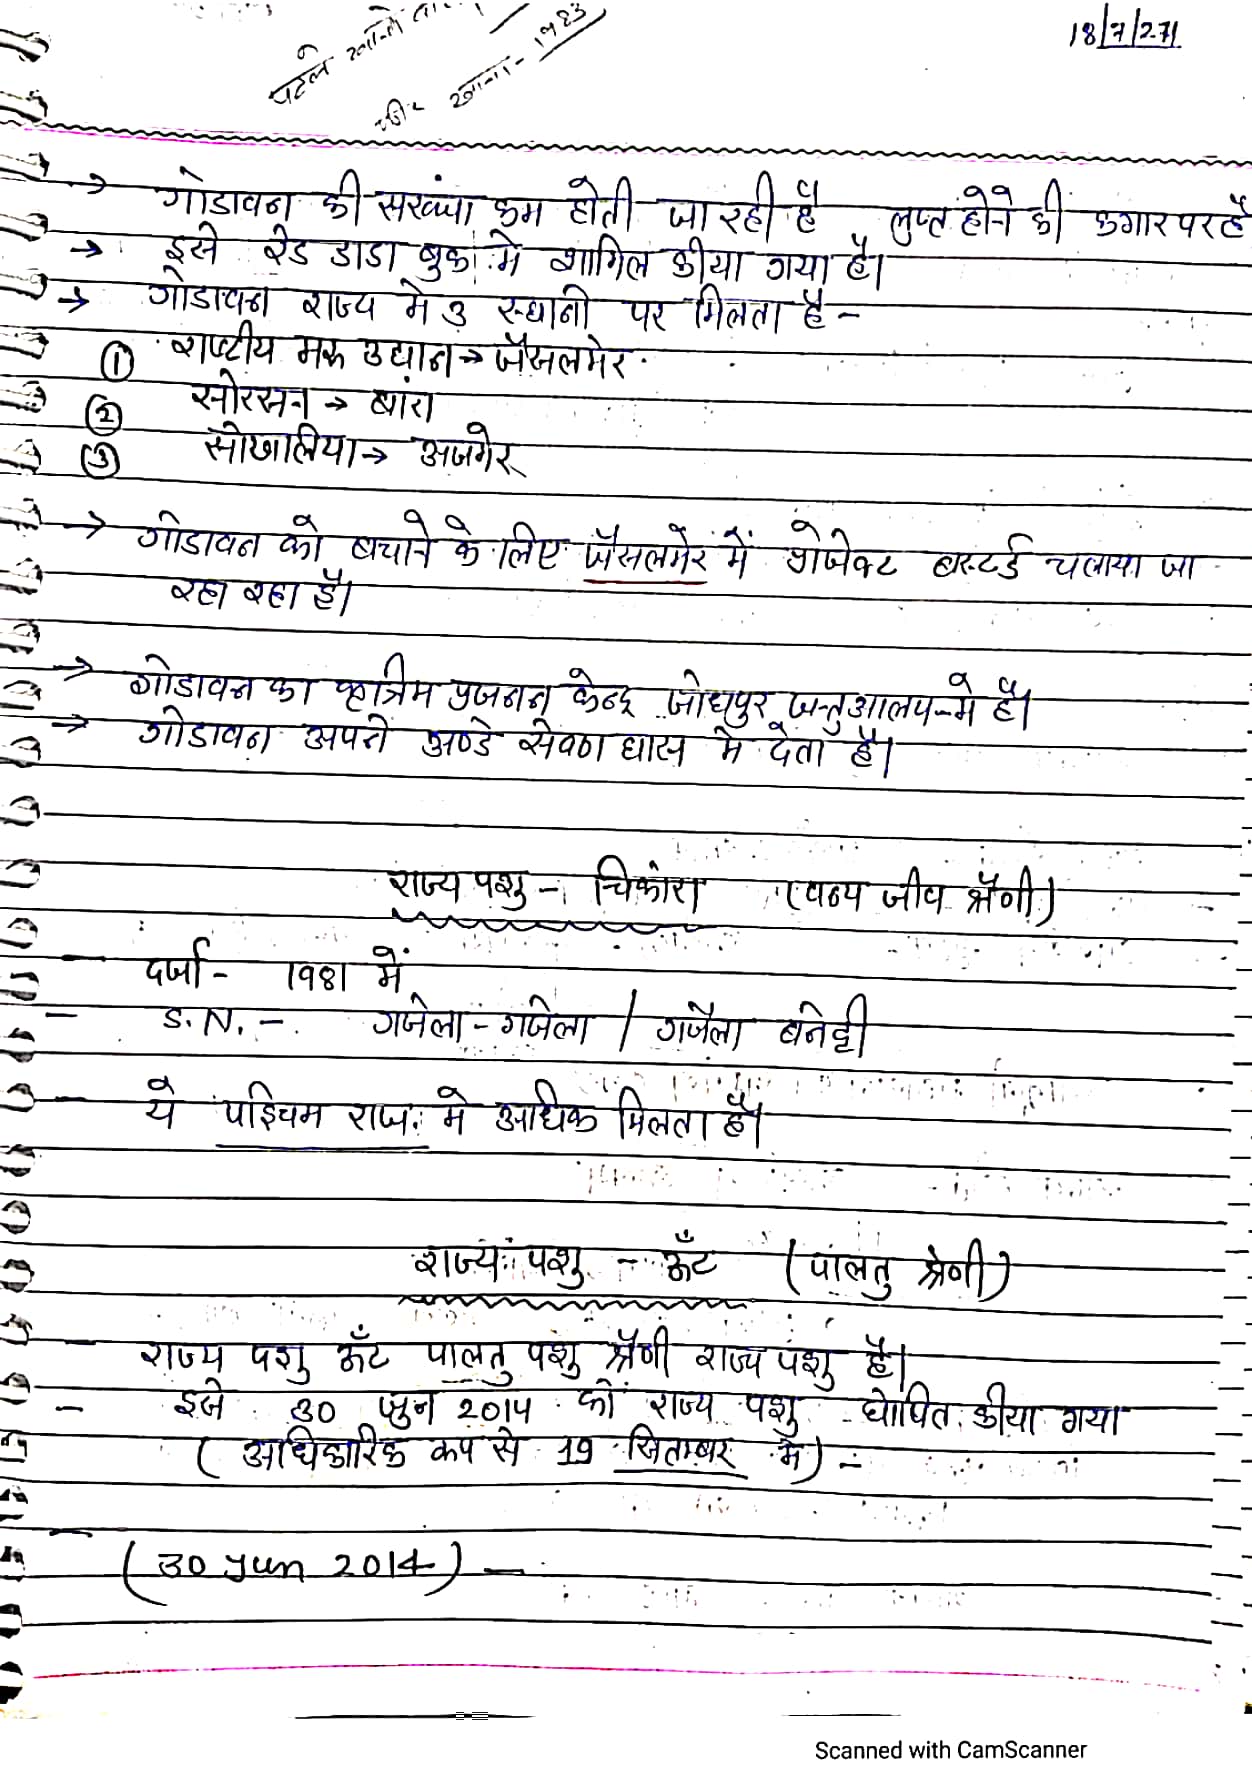 18/7/271
पटले
1983
→ गोडावन की सख्यां कम होती जा रही है लुप्त होने की कगार पर है
→ इसे रेड डाडा बुक में शामिल कीया गया है।
→ गोडावन राज्य मे 3 स्थानो पर मिलता है -
① राष्ट्रीय मरू उद्यान → जैसलमेर
② सोरसन → बांरा
③ सोखालिया → अजमेर
→ गोडावन को बचाने के लिए जैसलमेर में प्रोजेक्ट बस्टर्ड चलाया जा
रहा रहा है।
→ गोडावन का कृत्रिम प्रजनन केन्द्र जोधपुर जन्तुआलय में है।
→ गोडावन अपने अण्डे सेवण घास मे देता है।
राज्य पशु - चिकांरा (वन्य जीव श्रैणी)
- दर्जा - 1981 में
- S.N. - गजेला - गजेला / गजैला बनेट्टी
- ये पश्चिम राज. मे अधिक मिलता है।
राज्य पशु - ऊँट (पालतु श्रेणी)
- राज्य पशु ऊँट पालतु पशु श्रैणी राज्य पशु है।
- इसे 30 जुन 2014 को राज्य पशु घोषित कीया गया
( अधिकारिक रूप से 19 सितम्बर मे) -
- (30 Jun 2014) -
Scanned with CamScanner